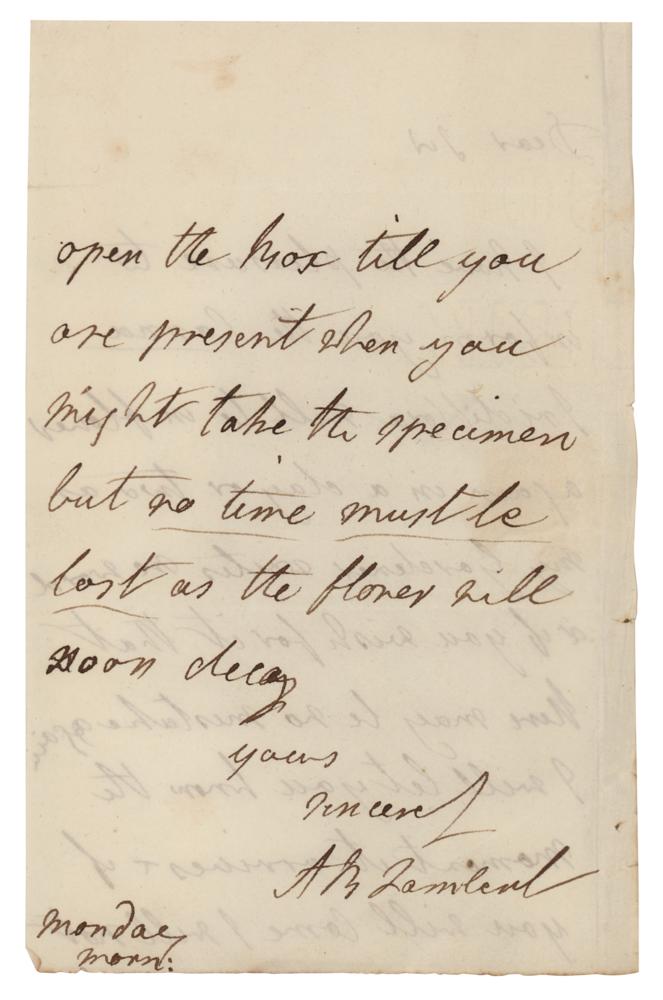 open the box till you
are present when you
might take the specimen
but no time must be
lost as the flower will
soon decay
yours
sincerely
A B Lambert
Monday
morn: